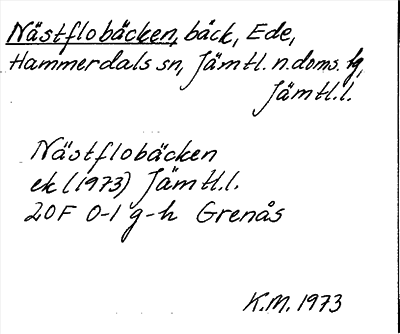 Nästflobäcken, bäck, Ede,
Hammerdals sn, Jämtl. n. doms. tg,
Jämtl. l.
Nästflobäcken
ek (1973) Jämtl. l.
20F 0-1 g-h Grenås
K.M. 1973